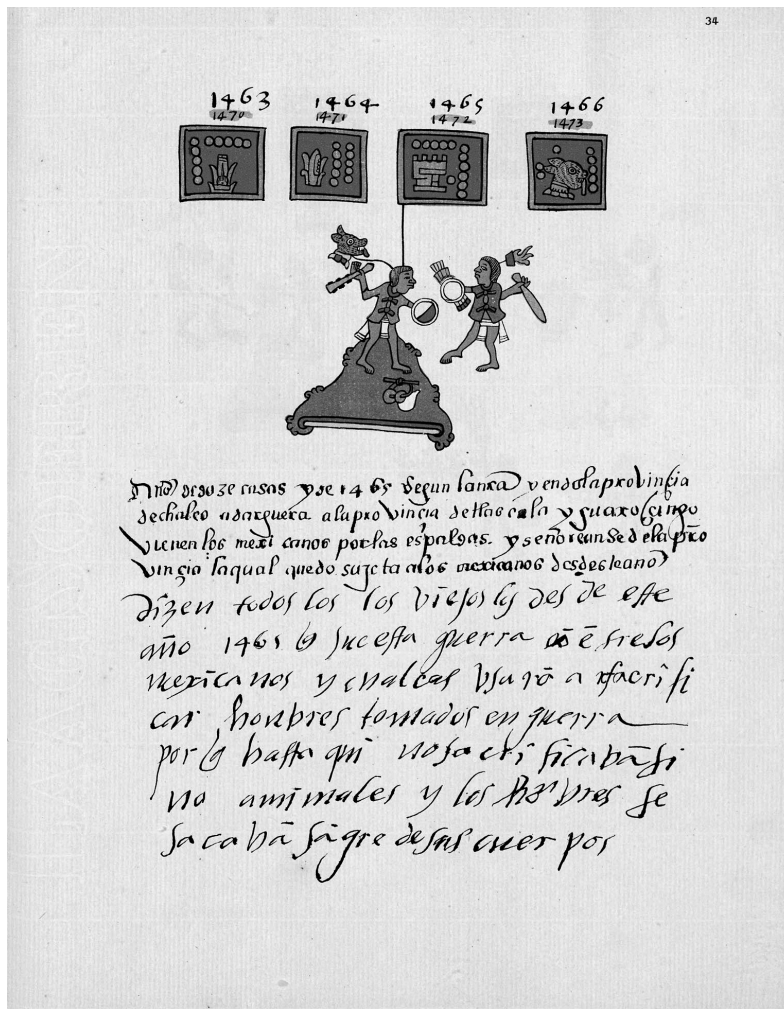 34
1463 1464 1465 1466
1470 1471 1472 1473
Año de doze casas y de 1465 segun la nra yendo la provincia
de chalco a dar guerra a la provincia de tlascala y guaxoçingo
vienen los mexicanos por las espaldas. y señoreanse de la pro
vinçia la qual quedo sujeta a los mexicanos desdeste año
dizen todos los los viejos q̃ desde este
año 1465 q̃ fue esta guerra entre los
mexicanos y chalcas usarō a sacrifi
car honbres tomados en guerra
por q̃ hasta aqui no sacrificabā si
no animales y los honbres se
sacabā sāgre de sus cuerpos